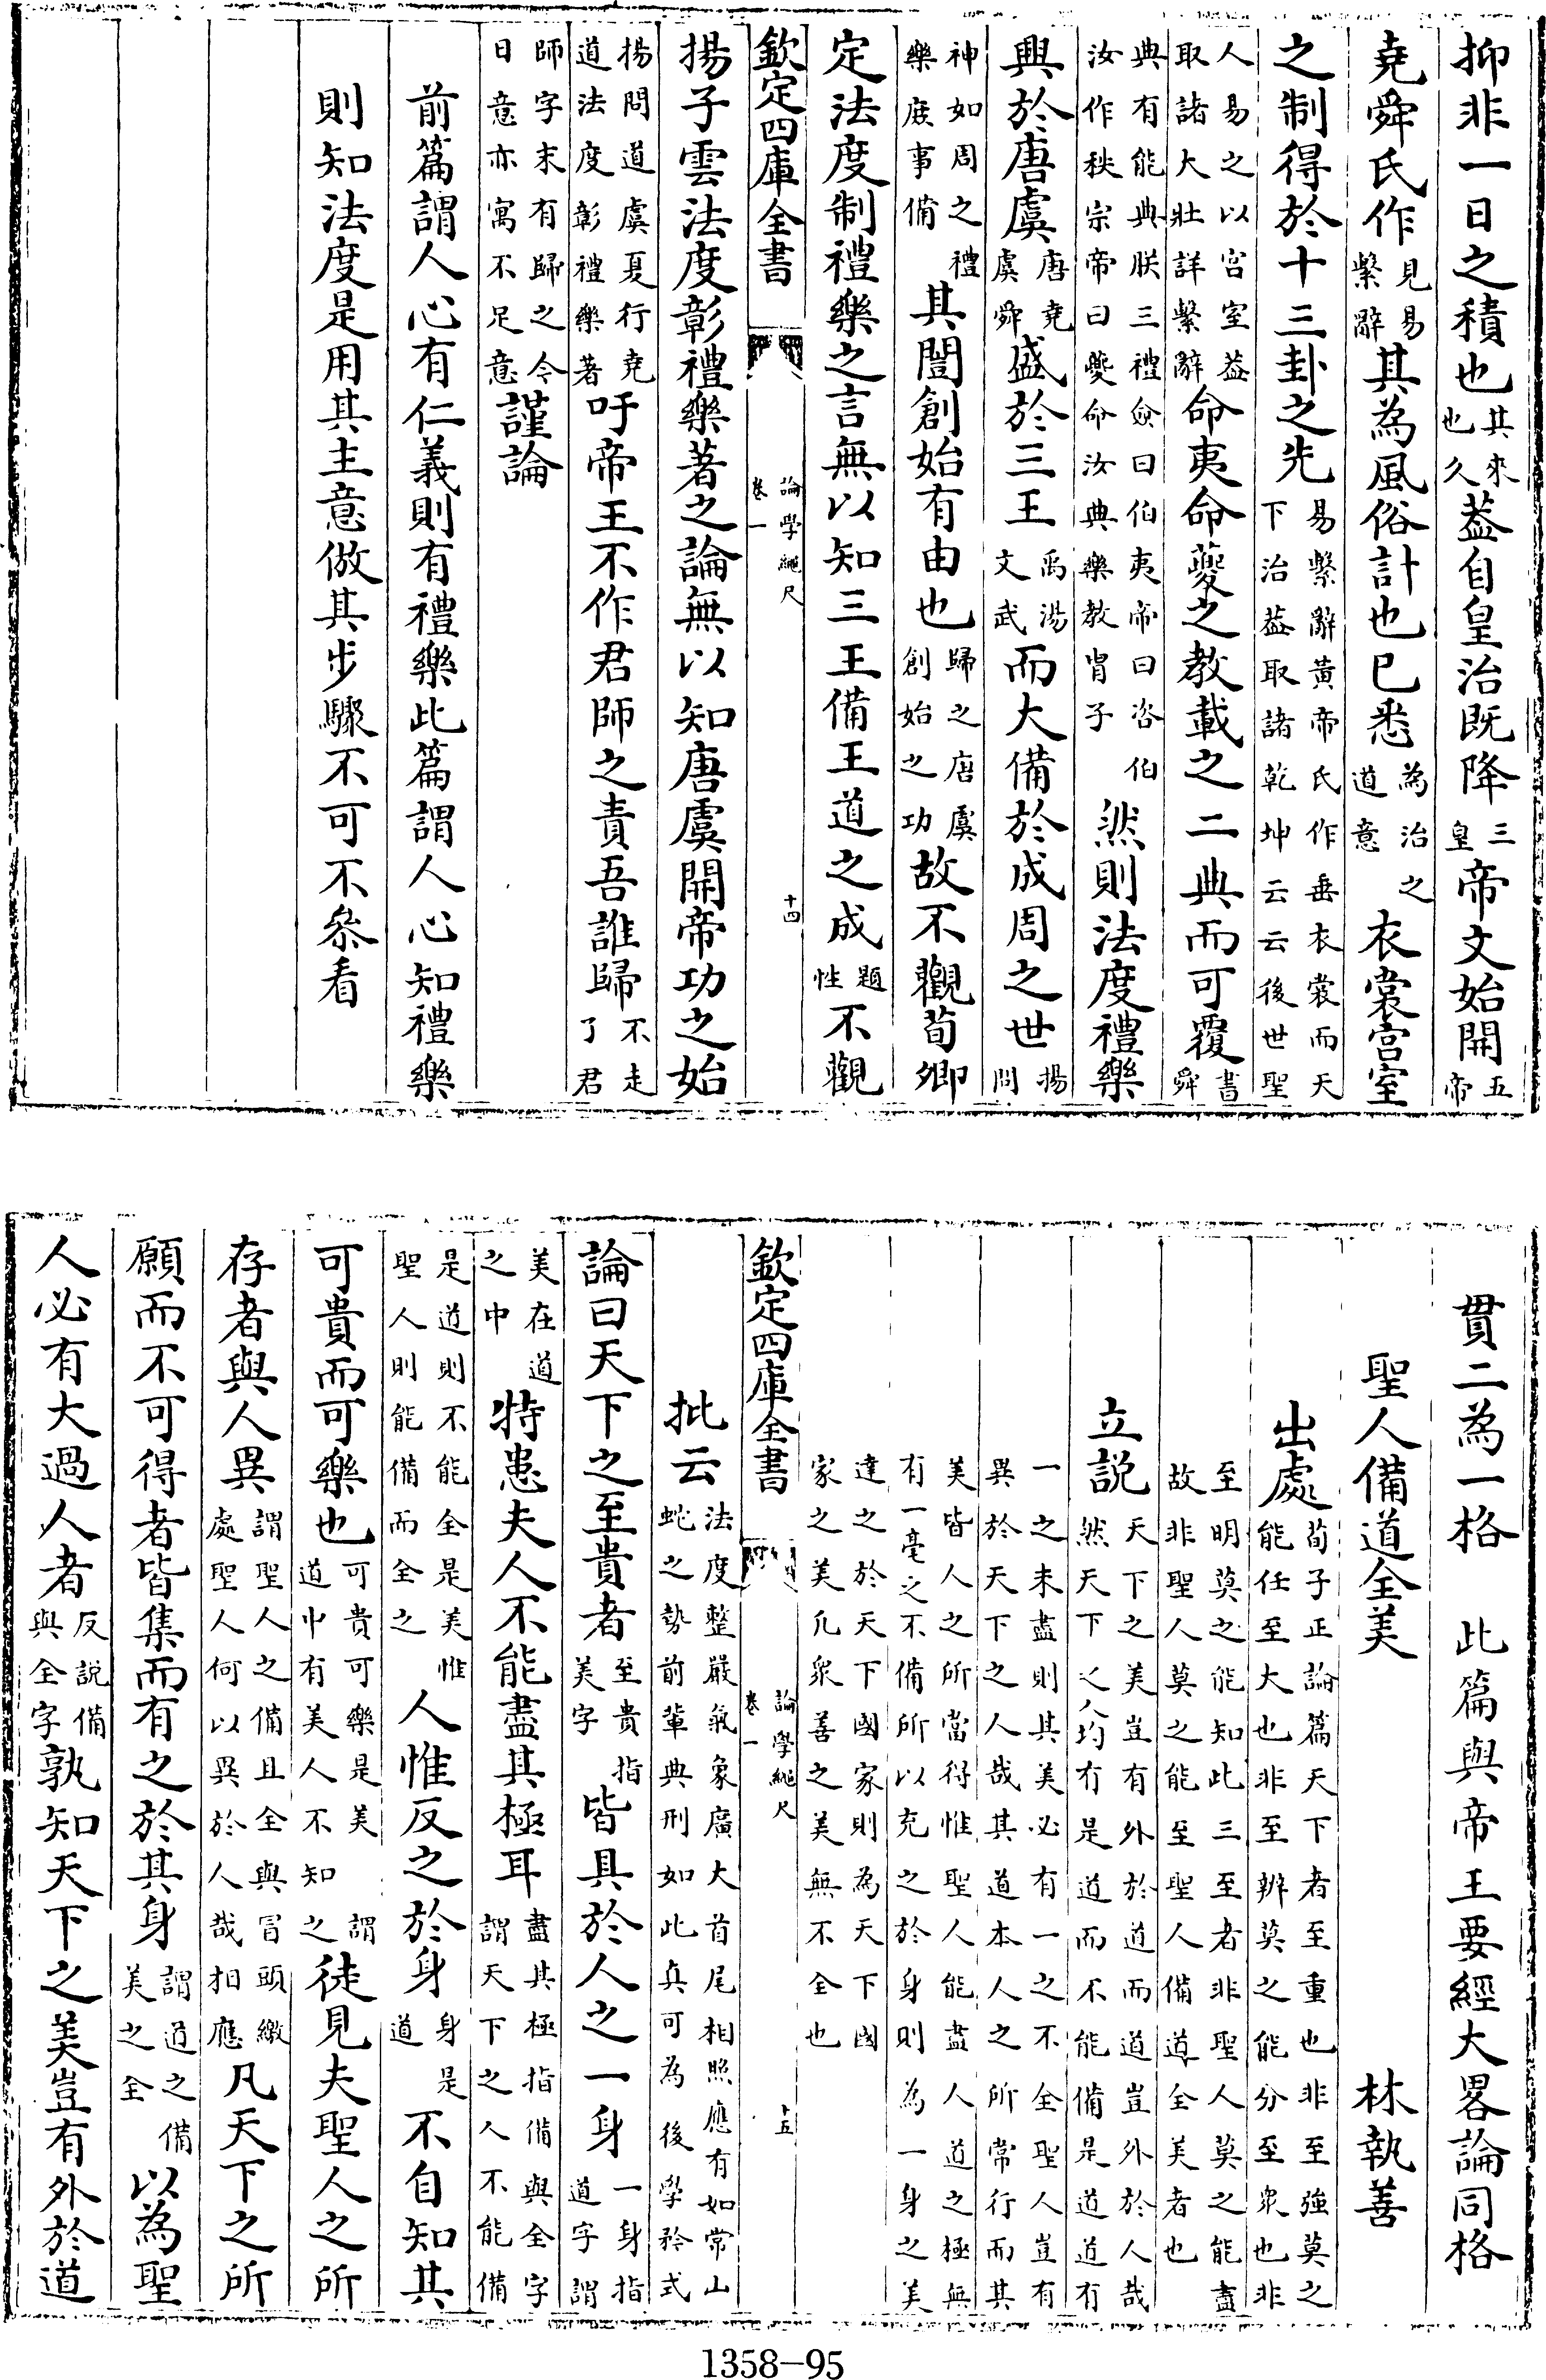 抑非一日之積也其來也久葢自皇治既降三皇帝文始開五帝
堯舜氏作見易繫辭其為風俗計也已悉為治之道意衣裳宫室
之制得於十三卦之先易繫辭黄帝氏作垂衣裳而天下治葢取諸乾坤云云後世聖
人易之以宫室葢取諸大壯詳繫辭命夷命夔之教載之二典而可覆書舜
典有能典朕三禮僉曰伯夷帝曰咨伯汝作秩宗帝曰夔命汝典樂教胄子然則法度禮樂
興於唐虞唐堯虞舜盛於三王禹湯文武而大備於成周之世揚問
神如周之禮樂庶事備其闓創始有由也歸之唐虞創始之功故不觀荀卿
定法度制禮樂之言無以知三王備王道之成題性不觀
欽定四庫全書 論學繩尺 卷一 十四
揚子雲法度彰禮樂著之論無以知唐虞開帝功之始
揚問道虞夏行堯道法度彰禮樂著吁帝王不作君師之責吾誰歸不走了君
師字末有歸之今日意亦寓不足意謹論
前篇謂人心有仁義則有禮樂此篇謂人心知禮樂
則知法度是用其主意倣其步驟不可不叅看
貫二為一格 此篇與帝王要經大畧論同格
聖人備道全美 林執善
出處荀子正論篇天下者至重也非至強莫之能任至大也非至辨莫之能分至衆也非
至明莫之能知此三至者非聖人莫之能盡故非聖人莫之能至聖人備道全美者也
立説天下之美豈有外於道而道豈外於人哉然天下之人均有是道而不能備是道道有
一之未盡則其美必有一之不全聖人豈有異於天下之人哉其道本人之所常行而其
美皆人之所當得惟聖人能盡人道之極無有一毫之不備所以充之於身則為一身之美
達之於天下國家則為天下國家之美凡衆善之美無不全也
欽定四庫全書 論學繩尺 卷一 十五
批云法度整嚴氣象廣大首尾相照應有如常山蛇之勢前輩典刑如此真可為後學矜式
論曰天下之至貴者至貴指美字皆具於人之一身一身指道字謂
美在道之中特患夫人不能盡其極耳盡其極指備與全字謂天下之人不能備
是道則不能全是美惟聖人則能備而全之人惟反之於身身是道不自知其
可貴而可樂也可貴可樂是美道中有美人不知謂之徒見夫聖人之所
存者與人異謂聖人之備且全與冒頭繳處聖人何以異於人哉相應凡天下之所
願而不可得者皆集而有之於其身謂道之備美之全以為聖
人必有大過人者反説備與全字孰知天下之美豈有外於道
1358-95